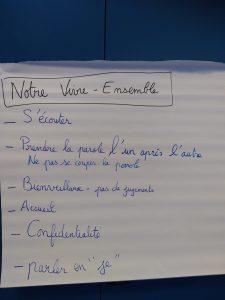 Notre Vivre - Ensemble
- S'écouter
- Prendre la parole l'un après l'autre
Ne pas se couper la parole
- Bienveillance - pas de jugements
- Accueil
- Confidentialité
- parler en "je"